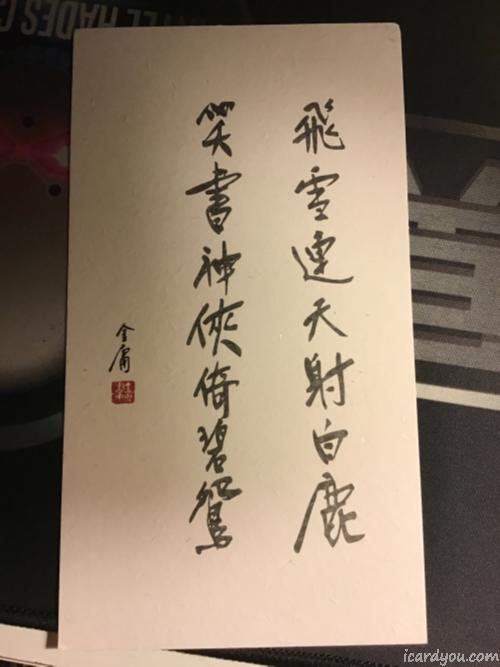 飛雪連天射白鹿
笑書神俠倚碧鴛
金庸
HADES
icardyou.com